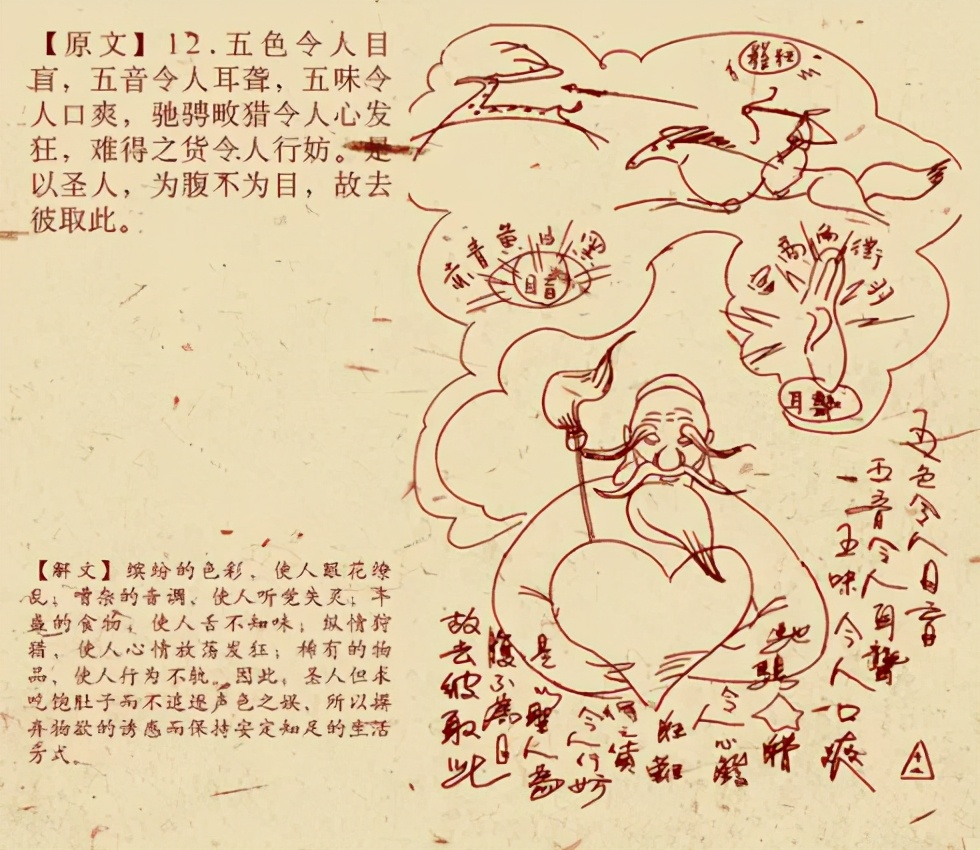 【原文】12.五色令人目
盲，五音令人耳聋，五味令
人口爽，驰骋畋猎令人心发
狂，难得之货令人行妨。是
以圣人，为腹不为目，故去
彼取此。
發狂
赤青黄白黑
目盲
商角徵羽
耳聾
【解文】缤纷的色彩，使人眼花缭
乱；嘈杂的音调，使人听觉失灵；丰
盛的食物，使人舌不知味；纵情狩
猎，使人心情放荡发狂；稀有的物
品，使人行为不轨。因此，圣人但求
吃饱肚子而不追逐声色之娱，所以摒
弃物欲的诱惑而保持安定知足的生活
方式。
五色令人目盲
五音令人耳聾
五味令人口爽
馳騁
猎
令人心發
狂難
得之貨
令人行妨
是以聖人為
腹不為目
故去彼取此